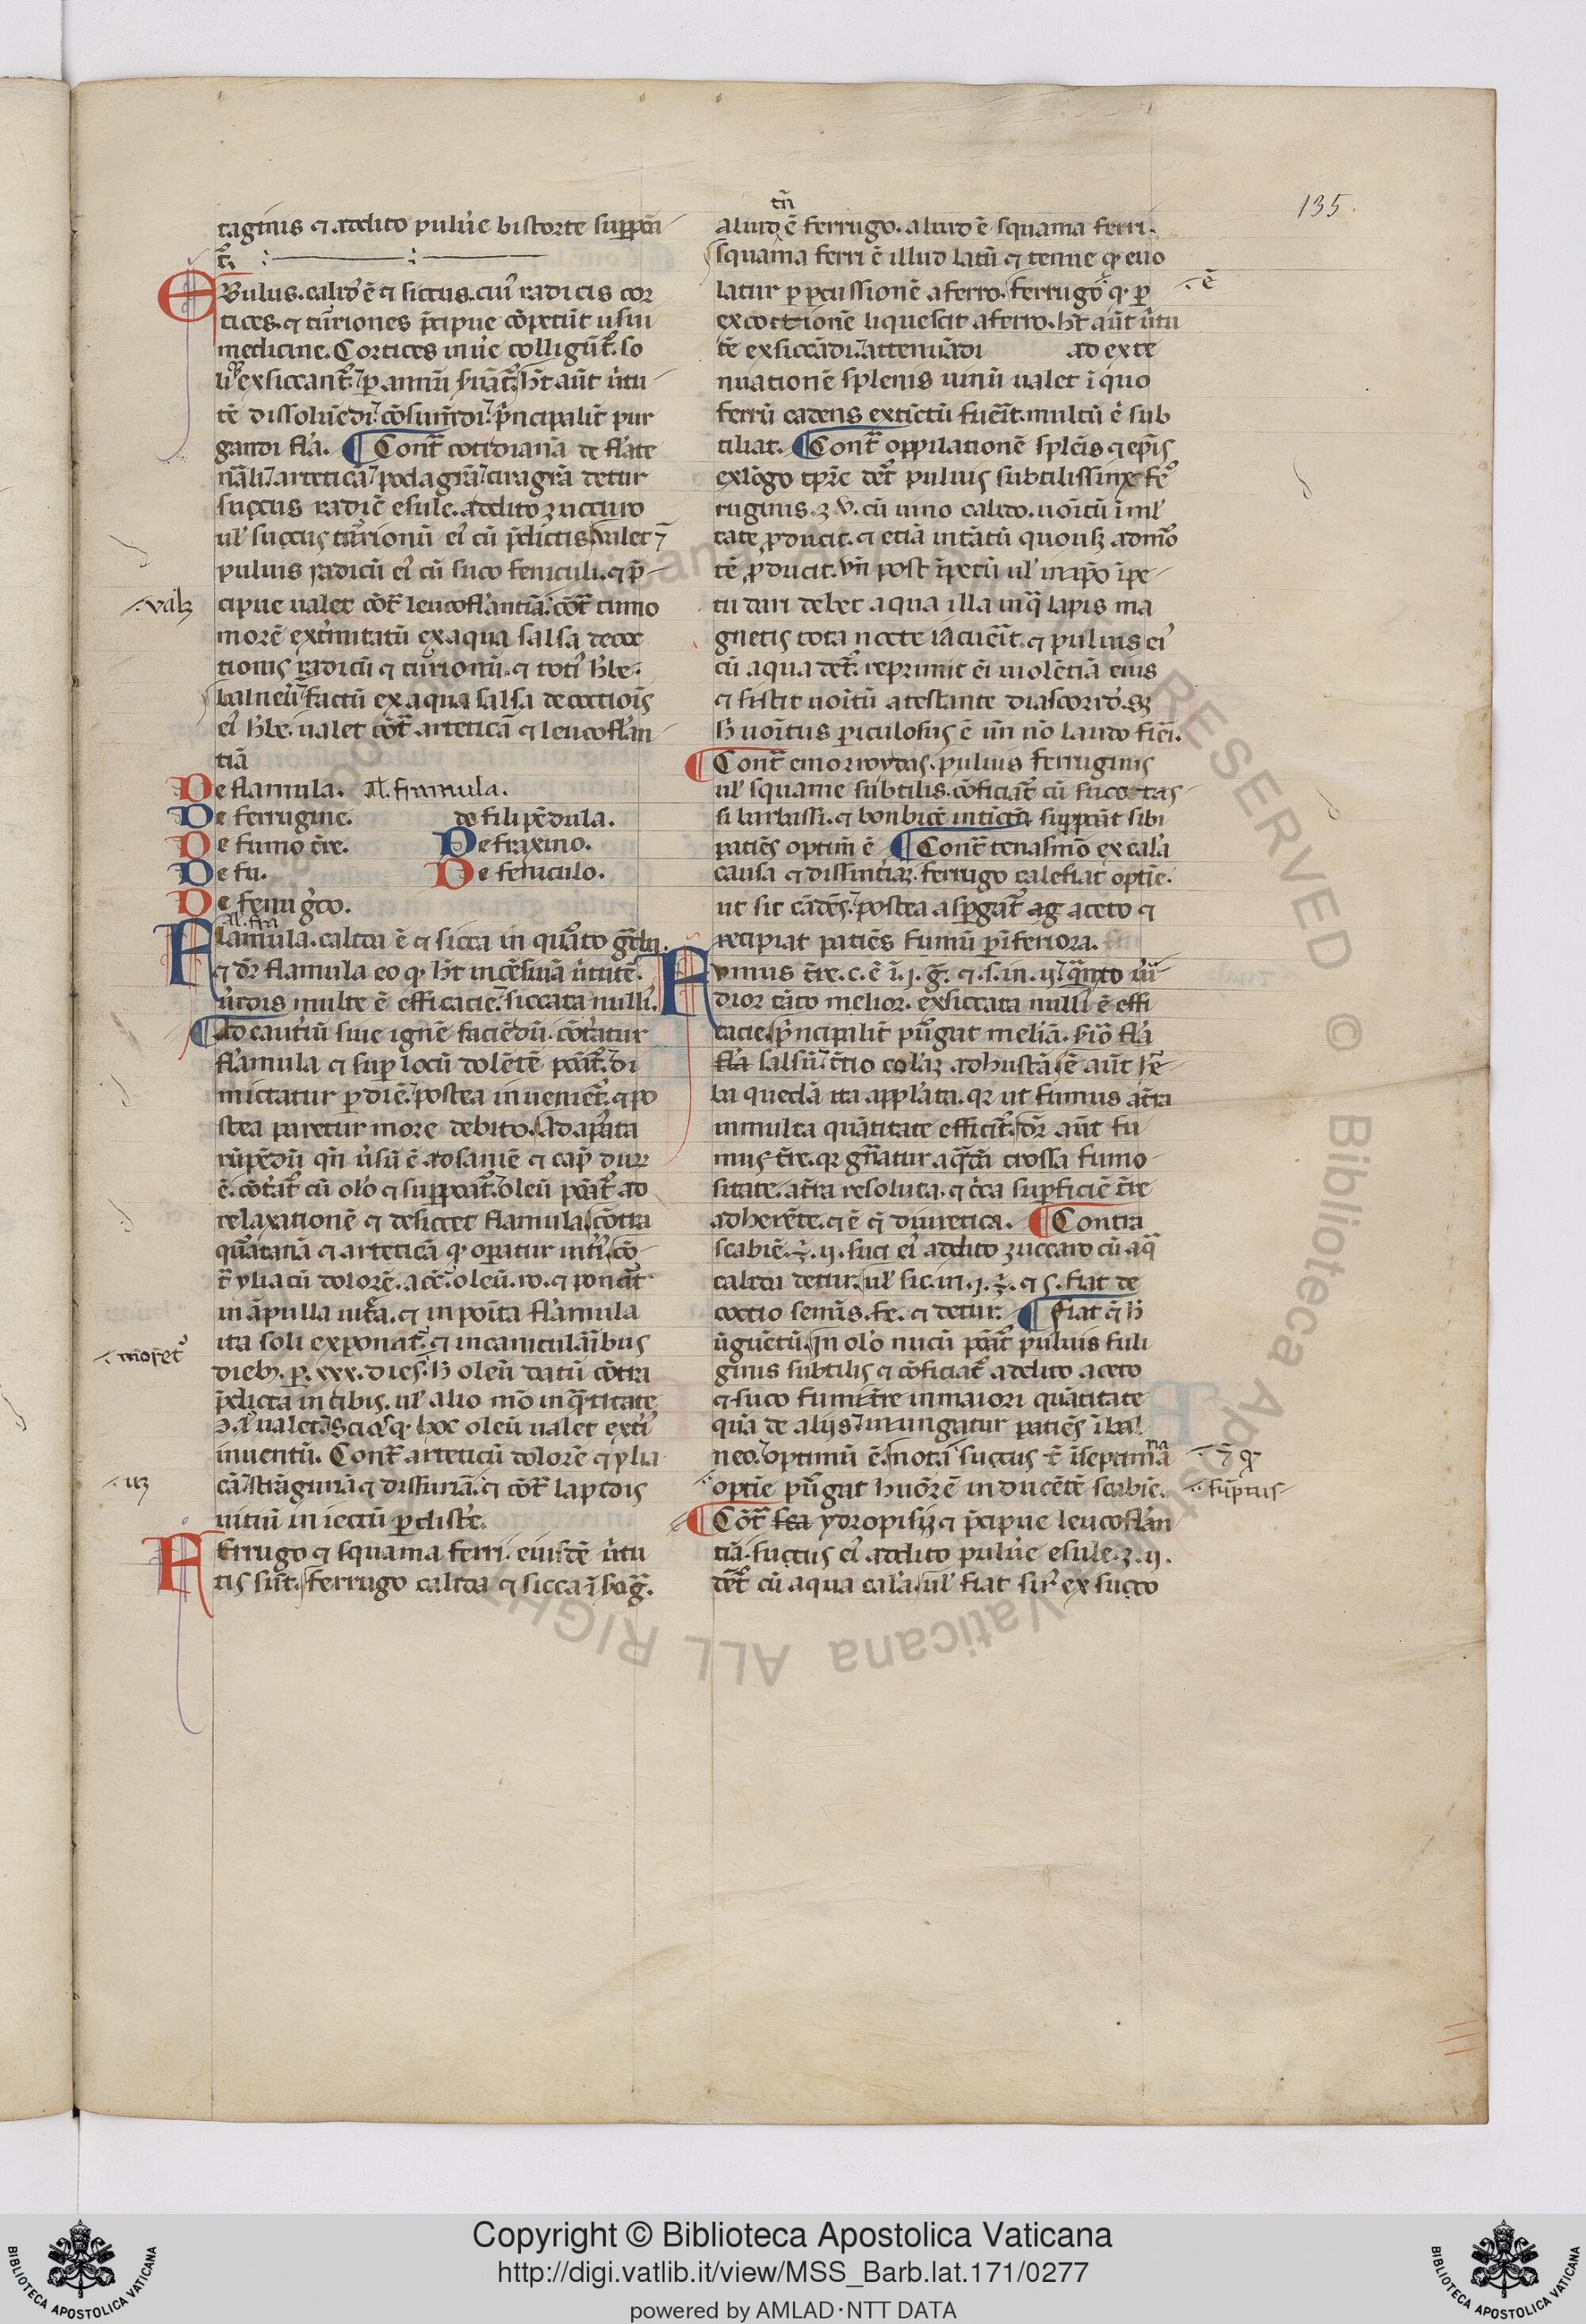 135.
taginis ⁊ addito puluˀe bistorte suppoa
t̄r.
EBulus. calidˀ ē ⁊ siccus. ciuˀ radicis cor
tices. ⁊ turiones p̄cipue cōpetūt usui
medicine. Cortices in uˀe colligūt̄. so
tē dissoluēdi. cōsumēdi. p̄ncipalit̄ pur
gandi fla. ¶ Cont̄ cotidianā de flate
nāli. arteticā. podagrā. ciragrā detur
succus radicē esule. addito zuccuro
ul̄ succus turionū eiˀ cū p̄dictis. ualet ⁊
puluis radicū eiˀ cū suco feniculi. ⁊ p̄
cipue ualet cōt̄ leucoflantiā. cōt̄ tumo
morē extˀmitatū ex aqua salsa decoc
tionis radicū ⁊ turionū. ⁊ totiˀ hˀbe.
balneū factū ex aqua salsa decoctiōis
eiˀ hˀbe. ualet cōt̄ arteticā ⁊ leucoflan
tiā
De flamula. Al. framula.
De ferrugine. de filipēdula.
De fumo t̄re. De fraxino.
De fu. De feniculo.
De fenugˀco.
Al. fra
Flamula. calida ē ⁊ sicca in quāto gˀdu.
⁊ dr̄ flamula eo qͥ hˀt incēsiuā uˀtutē.
uˀidis multe ē efficacie. siccata nulliˀ.
¶ Ad cautˀiū siue ignē faciēdū. cōtˀatur
flamula ⁊ sup locū dolētē poāt̄. di
mictatur p diē. postea inueniet̄. ⁊ po
stea paretur more debito. Ad apˀata
rūpēdū qn̄ uˀsū ē ad saniē ⁊ capˀ dur
ē. cōtˀat̄ cū olˀo ⁊ suppoāt̄. oleū poāt̄ ad
relaxationē ⁊ desiccet flamula. cōtra
quātanā ⁊ arteticā qͥ opatur intˀiˀ. cō
t̄ yliacū dolorē. acc̄. oleū. ro. ⁊ ponāt̄
in āpulla uitˀa. ⁊ inpoīta flamula
ita soli exponāt̄. ⁊ in canicularibus
dieb. p. xxx. dies. h̄ oleū datū cōtra
p̄dicta in cibis. ul̄ alio mō in q̄titate
inuentū. Cont̄ arteticū dolorē ⁊ ylia
cā. strāguriā ⁊ dissuriā. ⁊ cōt̄ lapidis
uitiū iniectū p clistˀe.
FErrugo ⁊ squama ferri. eiusdē uˀtu
tis sūt. ferrugo calida ⁊ sicca ī
tn̄
aliud ē ferrugo. aliud ē squama ferri.
squama ferri ē illud latū ⁊ tenue qͥ euo
latur p pcussionē a ferro. ferrugo qͥ p
excoctionē liquescit a ferro. hn̄t aūt uˀtu
tē exsiccādi. attenuādi ad exte
nuationē splenis uinū ualet ī quo
ferrū cadens extīctū fuˀit. multū ē sub
tiliat. ¶ Cont̄ oppilationē splēis ⁊ epˀis
ex lōgo tpˀe det̄ puluis subtilissime fe
ruginis. ʒ v. cū uino calido. uōitū ī mlˀ
tate pducit. ⁊ etiā in tātū quousq ad mō
tē pducit. un̄ post īpetū ul̄ in apō īpe
tu dari debet aqua illa in q̄ lapis ma
gnetis tota nocte iacuˀit. ⁊ puluis eiˀ
cū aqua det̄. reprimit ēi uiolētiā eius
⁊ sistit uōitū atestante diascoridˀ. sꝫ
h̄ uōitus piculosus ē un̄ nō laudo fiēi.
¶ Cont̄ emorroydas. puluis ferruginis
ul̄ squame subtilis. cōficiat̄ cū suco tas
si barbassi. ⁊ bonbicē intīcta suppoāt sibi
patiēs optim̄ ē ¶ Cont̄ tenasmō ex cala
causa ⁊ dissintˀia. ferrugo calefiat optie.
ut sit cādēs. postea aspgat̄ ag aceto ⁊
recipiat patiēs fumū pīferiora.
Fvmus t̄re. c. ē ī. j. ḡ. ⁊. s. in. ij. quanto ui
dior tāto melior. exsiccata nulliˀ ē effi
cacie. p̄ncipalit̄ pūgat meliā. siō fla
fla salsū. t̄tio colˀaʒ adhustā. ē aūt hˀ
ba quedā ita appˀlata. qꝛ ut fumus at̄ra
in multa quātitate efficit̄. dr̄ aūt fu
mus t̄re. qꝛ gn̄atur a q̄dā crossa fumo
sitate. at̄ra resoluta. ⁊ cˀca supficiē t̄re
adherēte. ⁊ ē diuretica. ¶ Contra
scabiē. ℥. ij. suci eiˀ addito zuccaro cū aq̄
calida detur. ul̄ sic. in. j. ℥. ⁊ s. fiat de
coctio semīs. fe. ⁊ detur. ¶ fiat h̄
ūguētū. In olˀo nucū poāt̄ puluis fuli
ginis subtilis ⁊ cōficiat̄ addito aceto
⁊ suco fumi t̄re in maiori quātitate
quā de alijs. inungatur patiēs ī bal
neo. optimū ē. nota succus t̄ī septima
optie pūgat huōrē inducētē scabiē.
¶ Cōt̄ fca ydropisiʒ ⁊ p̄cipue leucoflan
tiā. succus eiˀ addito puluˀe esule ʒ. ij.
det̄ cū aqua calˀa. ul̄ fiat sirˀ ex succo
Copyright © Biblioteca Apostolica Vaticana
http://digi.vatlib.it/view/MSS_Barb.lat.171/0277
powered by AMLAD·NTT DATA
BIBLIOTECA APOSTOLICA VATICANA
BIBLIOTECA APOSTOLICA VATICANA